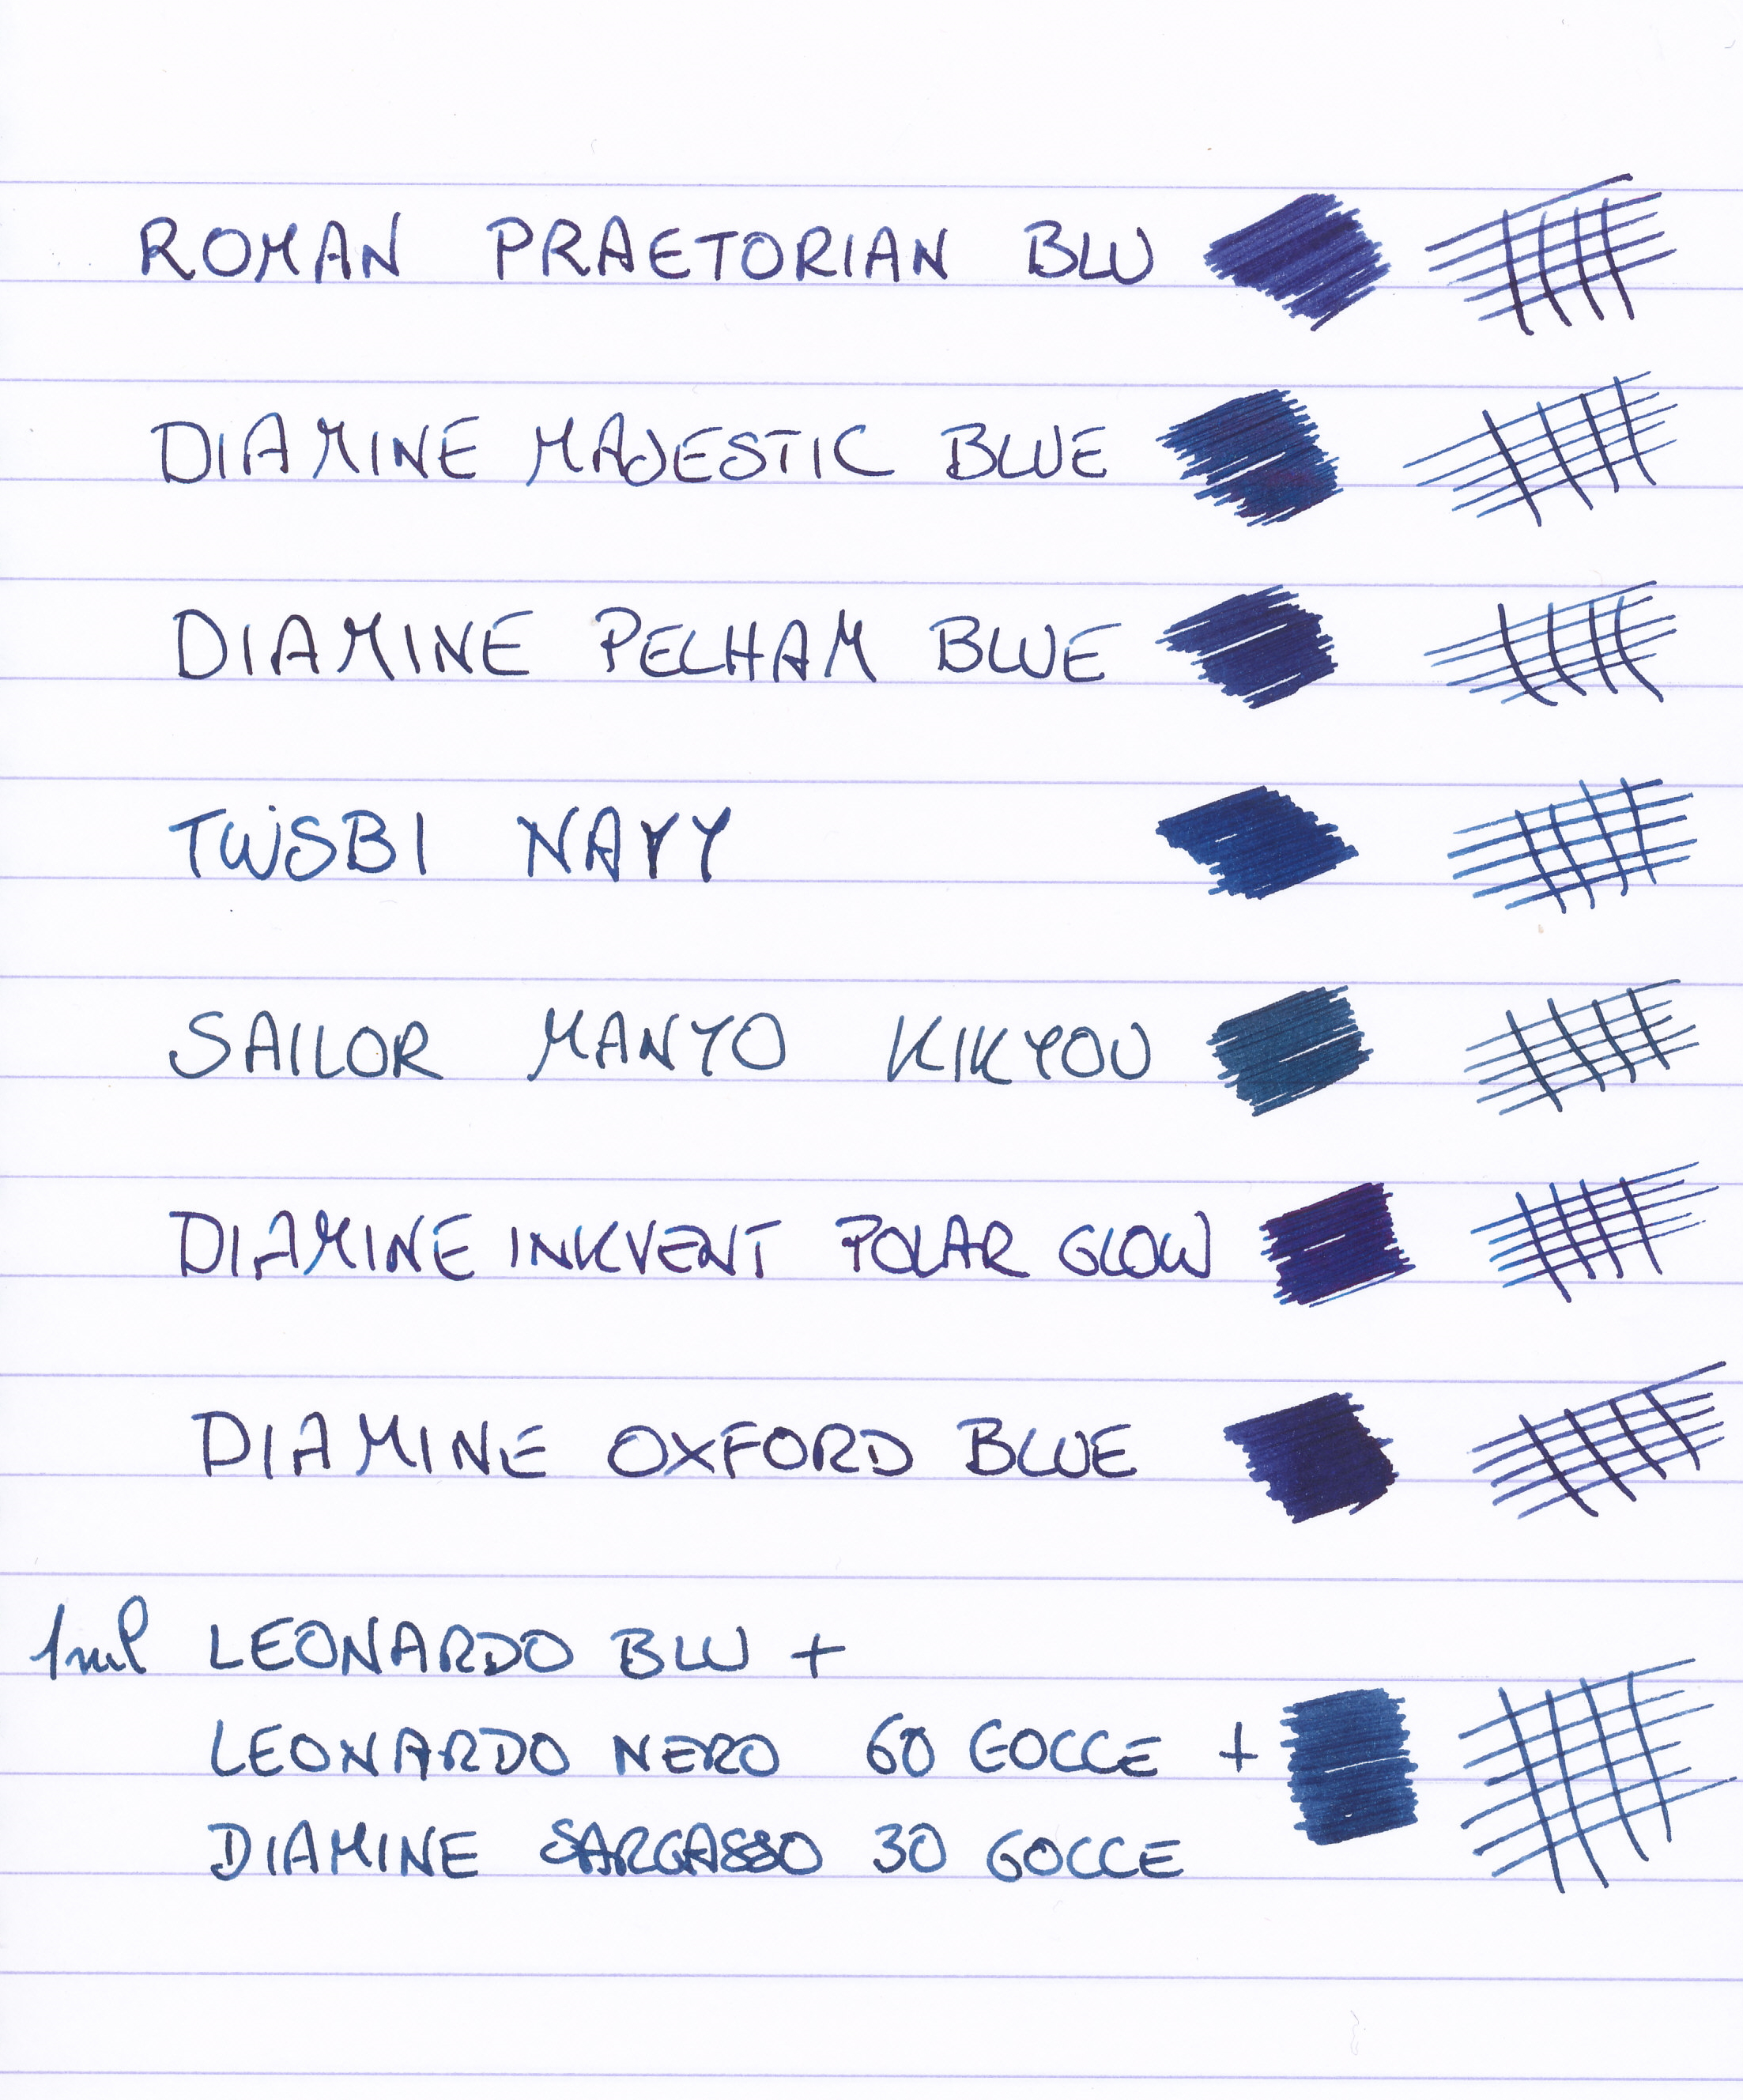 ROMAN PRAETORIAN BLU
DIAMINE MAJESTIC BLUE
DIAMINE PELHAM BLUE
TWSBI NAVY
SAILOR MANYO KIKYOU
DIAMINE INKVENT POLAR GLOW
DIAMINE OXFORD BLUE
1ml LEONARDO BLU +
LEONARDO NERO 60 GOCCE +
DIAMINE SARGASSO 30 GOCCE